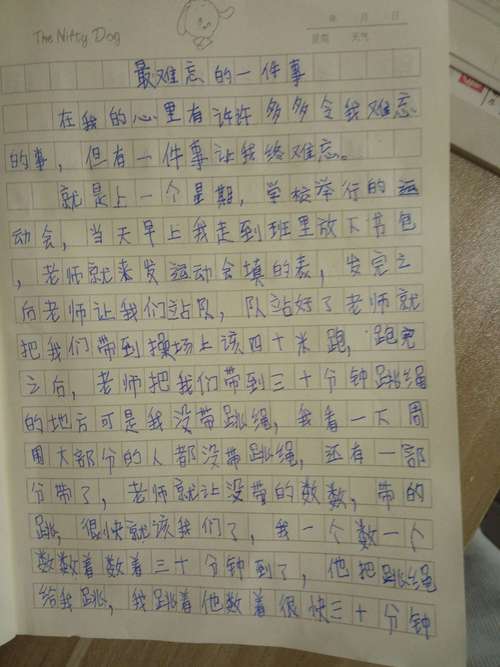 The Nifty Dog
年 月 日
星期 天气
最难忘的一件事
在我的心里有许许多多令我难忘
的事，但有一件事让我终难忘。
就是上一个星期，学校举行的运
动会，当天早上我走到班里放下书包
，老师就来发运动会填的表，发完之
后老师让我们站队，队站好了老师就
把我们带到操场上该四十米跑，跑完
之后，老师把我们带到三十分钟跳绳
的地方可是我没带跳绳，我看一下周
围大部分的人都没带跳绳，还有一部
分带了，老师就让没带的数数，带的
跳，很快就该我们了，我一个数一个
数数着数着三十分钟到了，他把跳绳
给我跳，我跳着他数着很快三十分钟